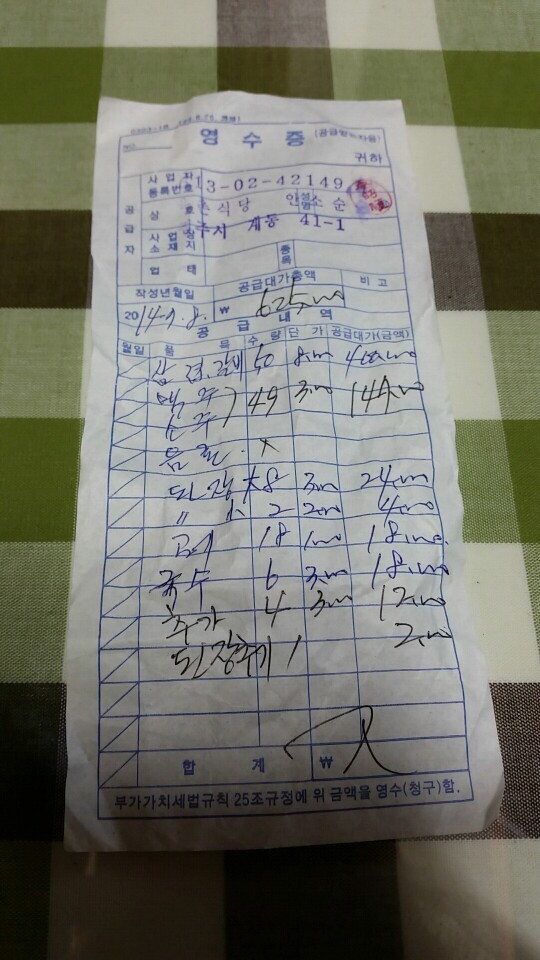 영 수 증 (공급받는자용)
NO. 귀하
공급자
사업자등록번호 13-02-42149
상호 식당 성명 안소순
사업장소재지 주시 계동 41-1
업태 종목
작성년월일 공급대가총액 비고
2014.7.8. ₩ 625,000
공 급 내 역
월일 품 목 수 량 단 가 공급대가(금액)
삼겹.갈비 50 8,000 400,000
맥주 ) 49 3,000 147,000
소주
음료 . x
된장 大 8 3,000 24,000
〃 小 2 2,000 4,000
공기 18 1,000 18,000
국수 6 3,000 18,000
추가 4 3,000 12,000
된장추가 1 2,000
합 계 ₩
부가가치세법규칙 25조규정에 위 금액을 영수(청구)함.